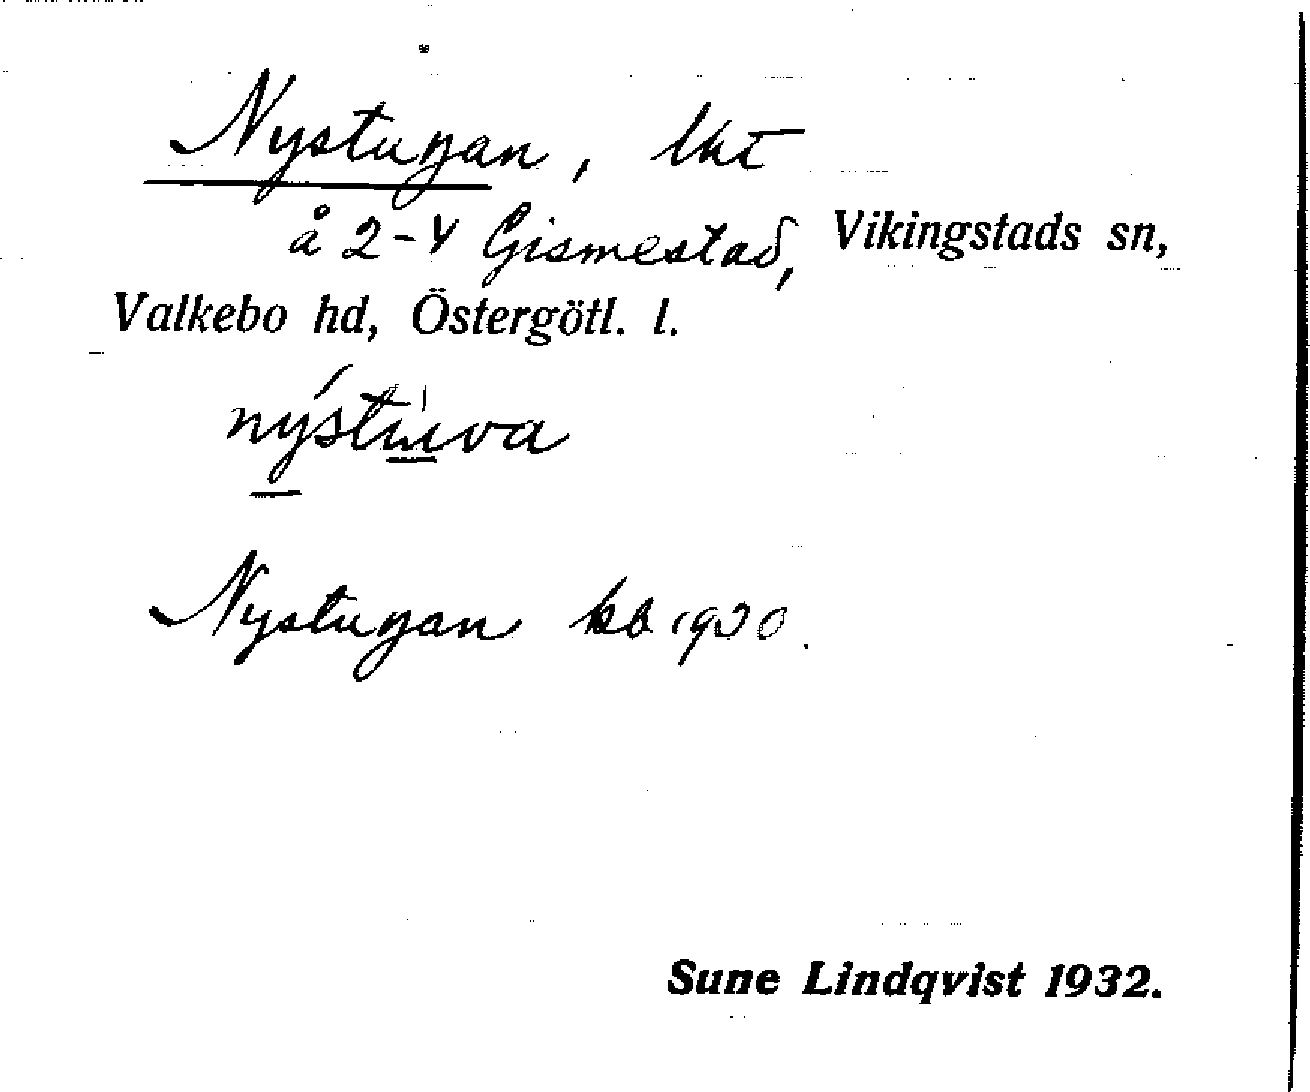 Nystugan, lht
å 2-4 Gismestad, Vikingstads sn,
Valkebo hd, Östergötl. l.
nýstùva
Nystugan kb 1930.
Sune Lindqvist 1932.